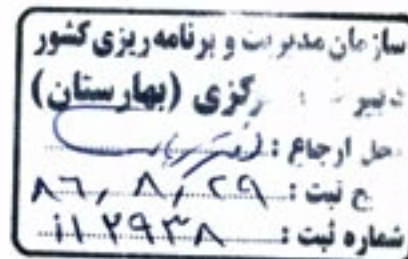 سازمان مدیریت و برنامه ریزی کشور
دبیر مرکزی (بهارستان)
محل ارجاع :
تاریخ ثبت : ۸۶/۸/۲۹
شماره ثبت : ۱۱۲۹۳۸